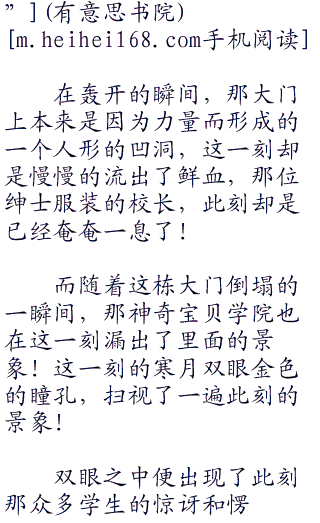 ”](有意思书院)
[m.heihei168.com手机阅读]
在轰开的瞬间，那大门
上本来是因为力量而形成的
一个人形的凹洞，这一刻却
是慢慢的流出了鲜血，那位
绅士服装的校长，此刻却是
已经奄奄一息了！
而随着这栋大门倒塌的
一瞬间，那神奇宝贝学院也
在这一刻漏出了里面的景
象！这一刻的寒月双眼金色
的瞳孔，扫视了一遍此刻的
景象！
双眼之中便出现了此刻
那众多学生的惊讶和愣